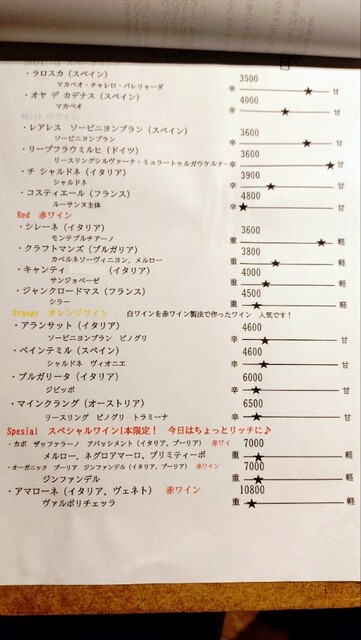 ・ラロスカ（スペイン） 3500
マカベオ・チャレロ・パレリャーダ 辛 ★ 甘
・オヤ デ カデナス（スペイン） 4000
マカベオ 辛 ★ 甘
White 白ワイン
・レアレス ソービニヨンブラン（スペイン） 3600
ソービニヨンブラン 辛 ★ 甘
・リープフラウミルヒ（ドイツ） 3600
リースリングシルヴァーナ・ミュラートゥルガウケルナー 辛 ★ 甘
・チ シャルドネ（イタリア） 3900
シャルドネ 辛 ★ 甘
・コスティエール（フランス） 4800
ルーサンヌ主体 辛★ 甘
Red 赤ワイン
・シレーネ（イタリア） 3600
モンテプルチアーノ 重 ★ 軽
・クラフトマンズ（ブルガリア） 3800
カベルネソーヴィニヨン、メルロー 重 ★ 軽
・キャンティ （イタリア） 4000
サンジョベーゼ 重 ★ 軽
・ジャンクロードマス（フランス） 4500
シラー 重 ★ 軽
Orange オレンジワイン 白ワインを赤ワイン製法で作ったワイン 人気です！
・アランサット（イタリア） 4600
ソービニヨンブラン ピノグリ 辛 ★ 甘
・ベインテミル（スペイン） 4600
シャルドネ ヴィオニエ 辛 ★ 甘
・ブルガリータ（イタリア） 6000
ジビッボ 辛 ★ 甘
・マインクラング（オーストリア） 6500
リースリング ピノグリ トラミーナ 辛 ★ 甘
Spesial スペシャルワイン1本限定！ 今日はちょっとリッチに♪
・カポ ザッファラーノ アパッシメント（イタリア、プーリア） 赤ワイ 7000
メルロー、ネグロアマーロ、プリミティーボ 重 ★ 軽
・オーガニック プーリア ジンファンデル（イタリア、プーリア） 赤ワイン 7000
ジンファンデル 重 ★ 軽
・アマローネ（イタリア、ヴェネト） 赤ワイン 10800
ヴァルポリチェッラ 重 ★ 軽